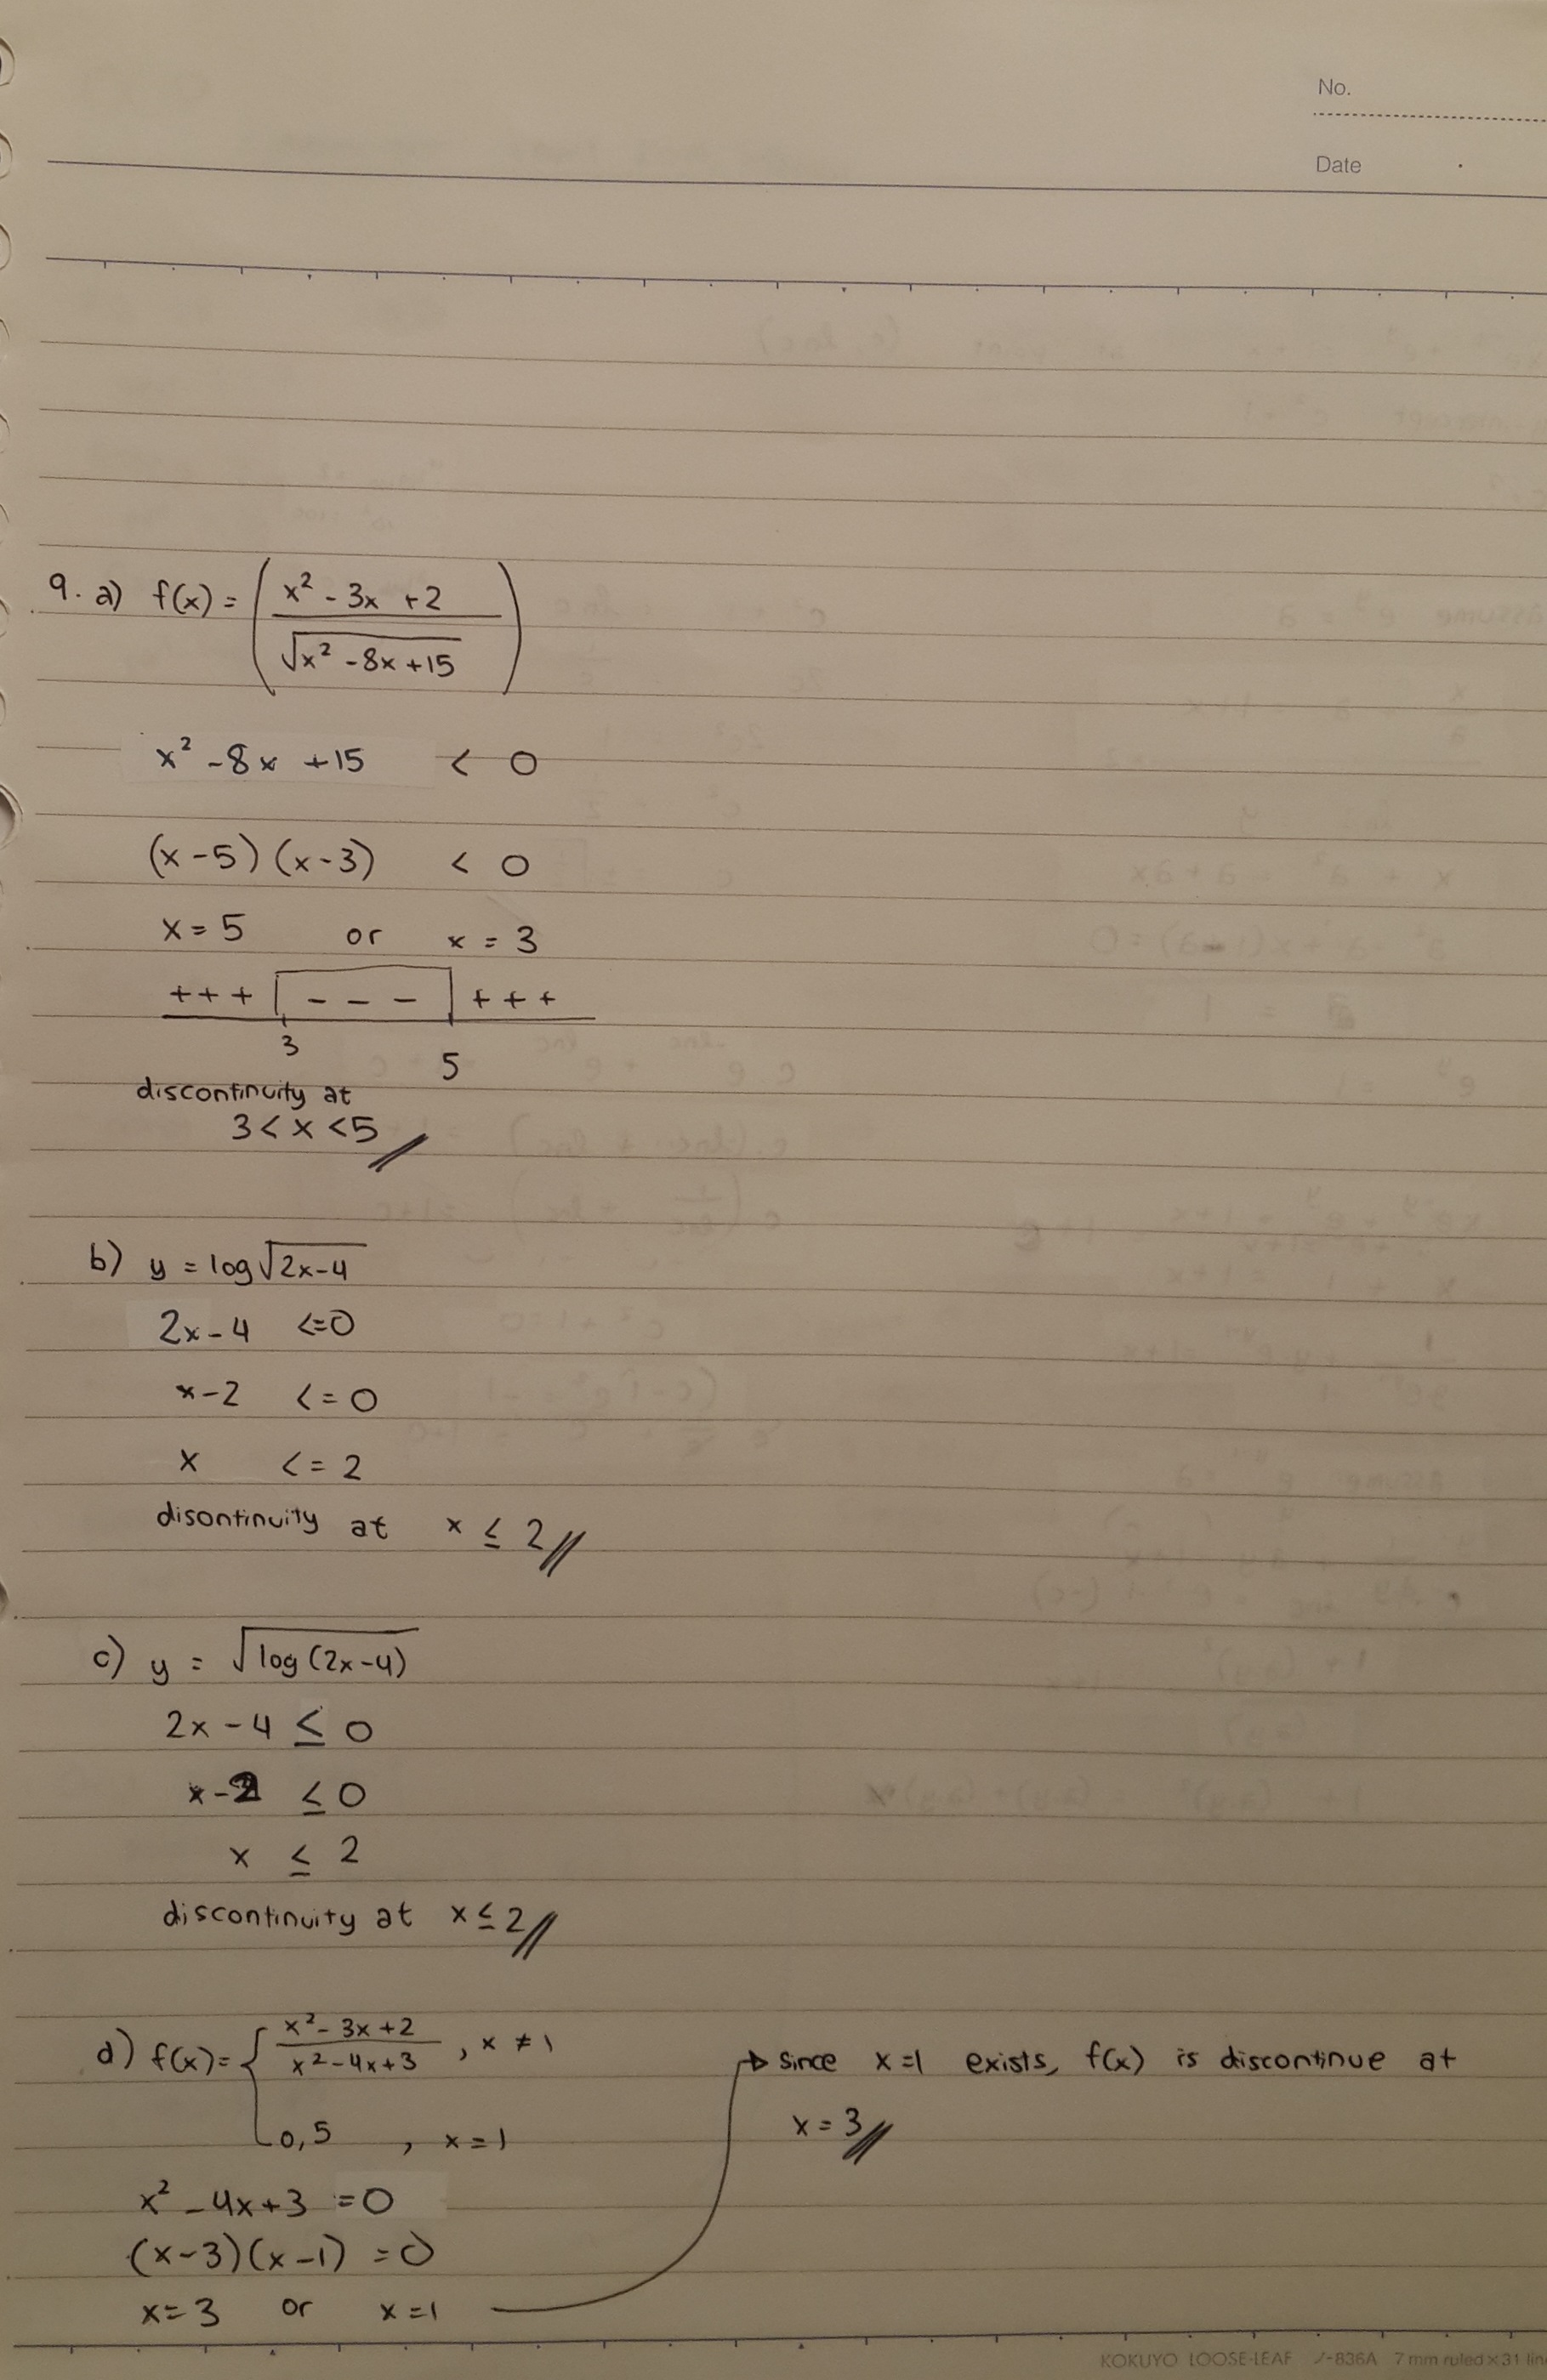 No.
Date
9. a) f(x) = (x² - 3x + 2 / √x² - 8x + 15)
x² - 8x + 15 < 0
(x - 5) (x - 3) < 0
x = 5 or x = 3
+ + + - - - + + +
3 5
discontinuity at
3 < x < 5
b) y = log √2x-4
2x - 4 <= 0
x - 2 <= 0
x <= 2
disontinuity at x ≤ 2
c) y = √log (2x-4)
2x - 4 ≤ 0
x - 2 ≤ 0
x ≤ 2
discontinuity at x ≤ 2
d) f(x) = { x² - 3x + 2 / x² - 4x + 3 , x ≠ 1
0,5 , x = 1
x² - 4x + 3 = 0
(x - 3) (x - 1) = 0
x = 3 or x = 1
since x = 1 exists, f(x) is discontinue at
x = 3
KOKUYO LOOSE-LEAF ノ-836A 7 mm ruled × 31